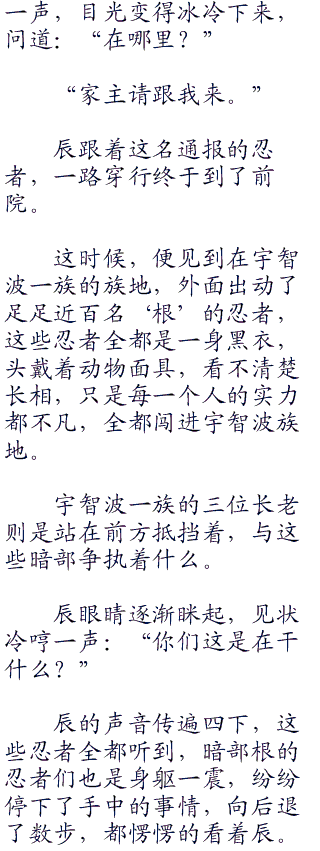 一声，目光变得冰冷下来，
问道：“在哪里？”
“家主请跟我来。”
辰跟着这名通报的忍
者，一路穿行终于到了前
院。
这时候，便见到在宇智
波一族的族地，外面出动了
足足近百名‘根’的忍者，
这些忍者全都是一身黑衣，
头戴着动物面具，看不清楚
长相，只是每一个人的实力
都不凡，全都闯进宇智波族
地。
宇智波一族的三位长老
则是站在前方抵挡着，与这
些暗部争执着什么。
辰眼睛逐渐眯起，见状
冷哼一声：“你们这是在干
什么？”
辰的声音传遍四下，这
些忍者全都听到，暗部根的
忍者们也是身躯一震，纷纷
停下了手中的事情，向后退
了数步，都愣愣的看着辰。